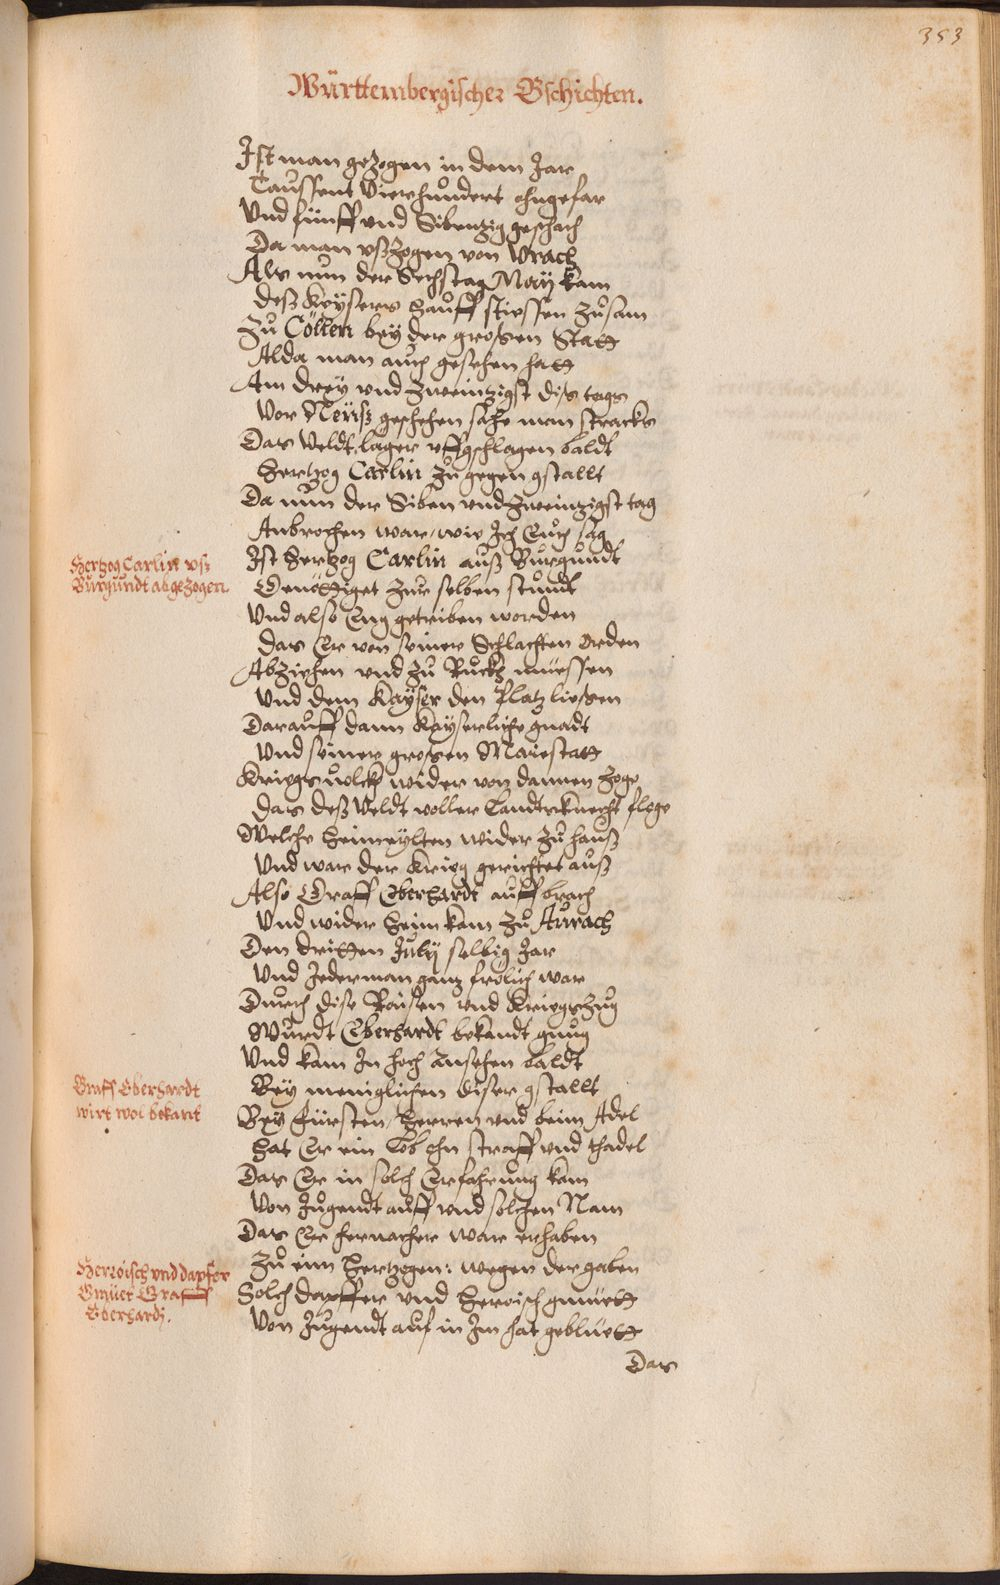 353
Württembergischer Gschichten.
Ist man gezogen in dem Jar
Taussent Vierhundert ohngefar
Vnd fünff vnd Sibenzig geschach
Da man vßzogen von Vrach
Als nun der Sechstag May kam
deß Keysers Hauff stiessen zusam
Zu Cöllen bey der grossen Statt
Alda man auch gesehen hatt
Am drey vnd zweintzigst diß tags
Vor Neüß geschehen sahe man stracks
Das Veldt.lager vffgschlagen baldt
Hertzog Carlin zu gegen gstallt
Da nun der Siben vnd zweintzigst tag
Anbrochen war, wie Ich Euch sag
Ist Hertzog Carlin auß Burgundt
Genöttiget zur selben stundt
Vnd also Eng getriben worden
Das Er von seiner Schlachten orden
Abziehen vnd zu Ruckh müessen
Vnd dem Kayser den platz liessen
Darauff dann Kayserliche gnadt
Vnd seiner grossen Maiestatt
Kriegsvolckh wider von dannen zoge
Das deß Veldt voller Landtsknecht floge
Welche heimeylten wider zu hauß
Vnd war der Krieg gerichtet auß
Also Graff Eberhardt auffbrach
Vnd wider heim kam zu Aurach
Den dritten July selbig Jar
Vnd Jederman gantz frölich war
Durch dise Raisen vnd Kriegszug
Wurdt Eberhardt bekandt gnug
Vnd kam In hoch ansehen baldt
Bey meniglichen diser gstallt
Bey Fürsten, Herren vnd beim Adel
Hat Er ein Lob ohn straff vnd thadel
Das Er in solch Erfahrung kam
Von Jugendt auff vnd solchen Nam
Das Er hernacher war erhaben
Zu eim Hertzogen: wegen der gaben
Solch dapffer vnd Heroisch gmüett
Von Jugendt auf in Im hat geblüett
Das
Hertzog Carlin vß
Burgundt abgezogen
Graff Eberhardt
wirt wol bekant
Herroisch vnd dapfer
Gmüet Graff
Eberhardj.